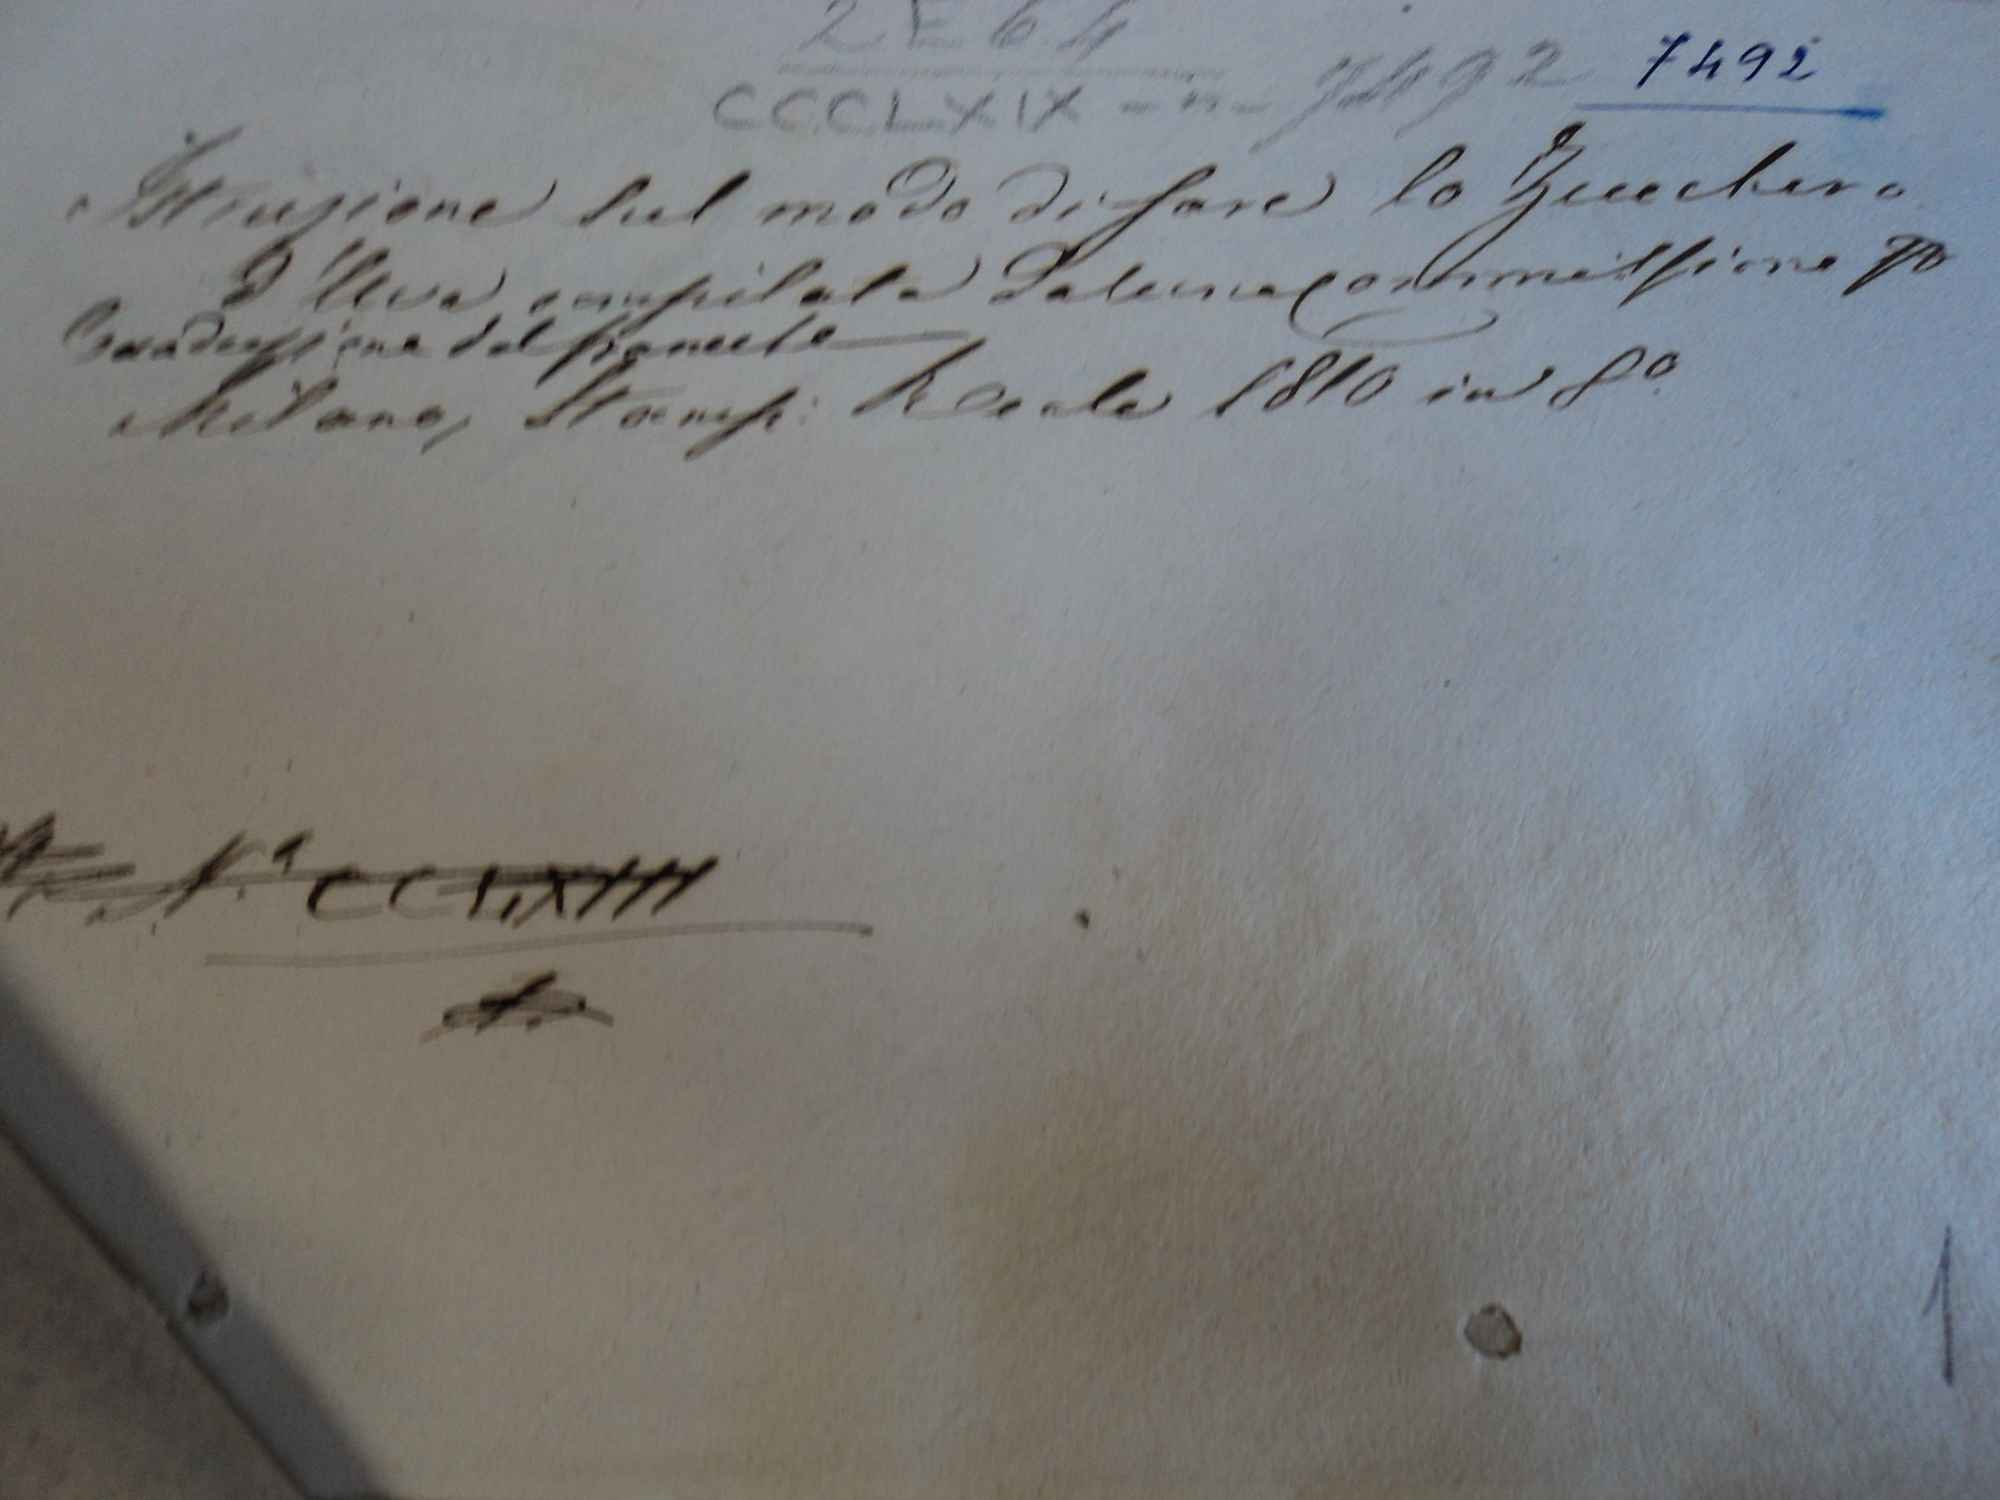 2 E 64
CCCLXIX - n - 7492 7492
Istruzione sul modo di fare lo Zucchero
d'Uva compilata da una Commissione
traduzione dal francese
Milano, Stamp: Reale 1810 in 8º.
N.º CCLXIII
1